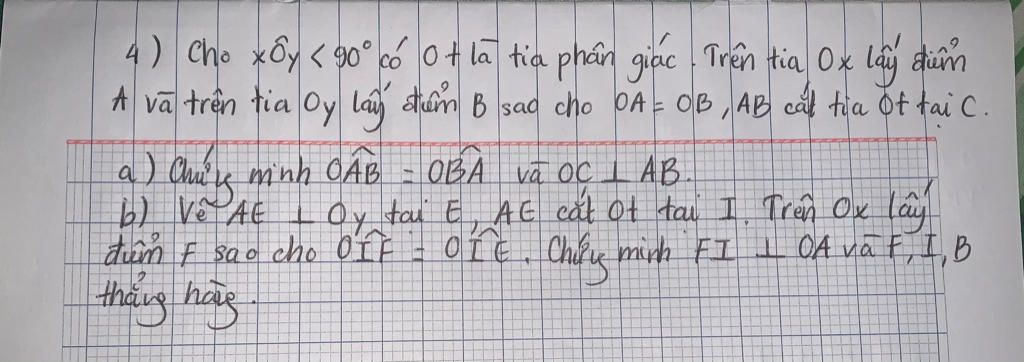 4) Cho xÔy < 90° có Ot là tia phân giác. Trên tia Ox lấy điểm
A và trên tia Oy lấy điểm B sao cho OA = OB, AB cắt tia Ot tại C.
a) Chứng minh OÂB = OB̂A và OC ⊥ AB.
b) Vẽ AE ⊥ Oy tại E, AE cắt Ot tại I. Trên Ox lấy
điểm F sao cho OÎF = OÎE. Chứng minh FI ⊥ OA và F, I, B
thẳng hàng.